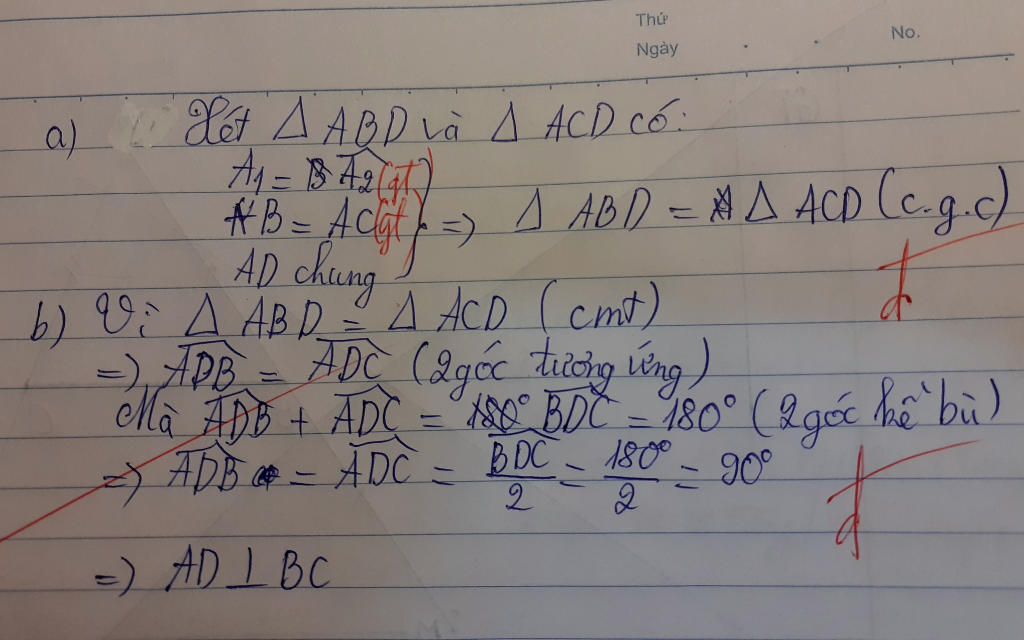 Thứ
Ngày
No.
a) Xét Δ ABD và Δ ACD có:
A1 = A2 (gt)
AB = AC (gt)
AD chung
=> Δ ABD = Δ ACD (c.g.c)
đ
b) Vì Δ ABD = Δ ACD (cmt)
=> ADB = ADC (2 góc tương ứng)
Mà ADB + ADC = BDC = 180° (2 góc kề bù)
=> ADB = ADC = BDC/2 = 180°/2 = 90°
đ
=> AD ⊥ BC